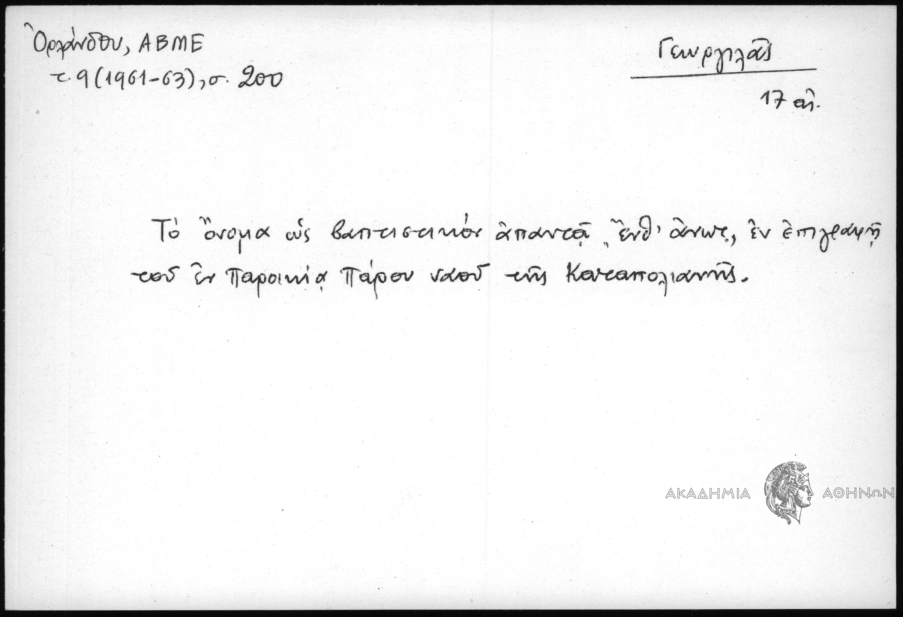 Ὀρλάνδου, ΑΒΜΕ
τ. 9 (1961-63), σ. 200
Γεωργιλᾶς
17 αἰ.
Τὸ ὄνομα ὡς βαπτιστικὸν ἀπαντᾷ, ἔνθ' ἄνωτ, ἐν ἐπιγραφῇ
τοῦ ἐν Παροικίᾳ Πάρου ναοῦ τῆς Καταπολιανῆς.
ΑΚΑΔΗΜΙΑ ΑΘΗΝΩΝ